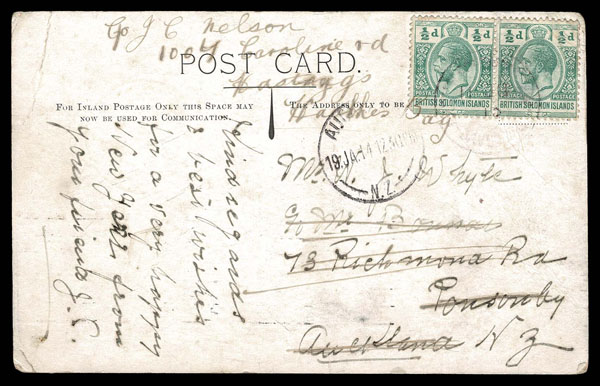 c/o J C Nelson
1004 Caroline rd
POST CARD.
Hastings
Hawkes Bay
FOR INLAND POSTAGE ONLY THIS SPACE MAY
NOW BE USED FOR COMMUNICATION.
THE ADDRESS ONLY TO BE
½d ½d
POSTAGE POSTAGE
BRITISH SOLOMON ISLANDS BRITISH SOLOMON ISLANDS
19 JA 14
N.Z.
Kind regards
& best wishes
for a very happy
New Year from
your friend J.C.
Mr. J. Whyte
73 Richmond Rd
Ponsonby
Auckland N Z